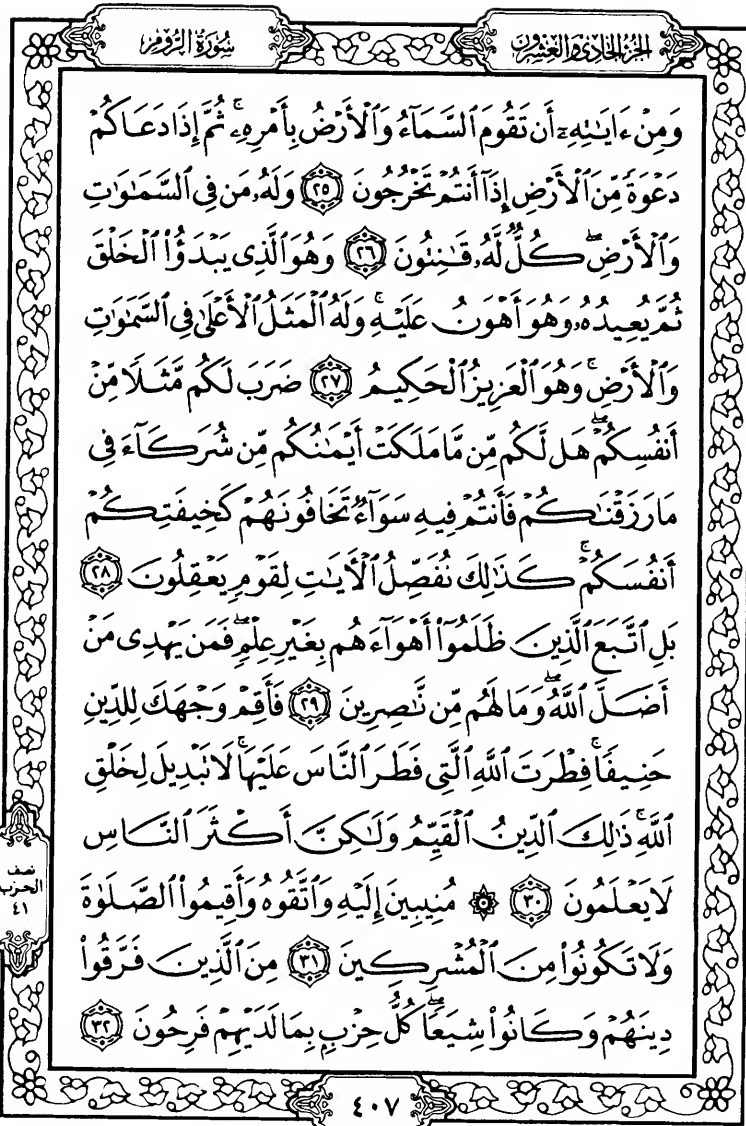 الجزء الحادي والعشرون
سُورَةُ الرُّومِ
وَمِنْ ءَايَٰتِهِۦٓ أَن تَقُومَ ٱلسَّمَآءُ وَٱلْأَرْضُ بِأَمْرِهِۦۚ ثُمَّ إِذَا دَعَاكُمْ
دَعْوَةً مِّنَ ٱلْأَرْضِ إِذَآ أَنتُمْ تَخْرُجُونَ ٢٥ وَلَهُۥ مَن فِى ٱلسَّمَٰوَٰتِ
وَٱلْأَرْضِۖ كُلٌّ لَّهُۥ قَٰنِتُونَ ٢٦ وَهُوَ ٱلَّذِى يَبْدَؤُا۟ ٱلْخَلْقَ
ثُمَّ يُعِيدُهُۥ وَهُوَ أَهْوَنُ عَلَيْهِۚ وَلَهُ ٱلْمَثَلُ ٱلْأَعْلَىٰ فِى ٱلسَّمَٰوَٰتِ
وَٱلْأَرْضِۚ وَهُوَ ٱلْعَزِيزُ ٱلْحَكِيمُ ٢٧ ضَرَبَ لَكُم مَّثَلًا مِّنْ
أَنفُسِكُمْۖ هَل لَّكُم مِّن مَّا مَلَكَتْ أَيْمَٰنُكُم مِّن شُرَكَآءَ فِى
مَا رَزَقْنَٰكُمْ فَأَنتُمْ فِيهِ سَوَآءٌ تَخَافُونَهُمْ كَخِيفَتِكُمْ
أَنفُسَكُمْۚ كَذَٰلِكَ نُفَصِّلُ ٱلْـَٔايَٰتِ لِقَوْمٍ يَعْقِلُونَ ٢٨
بَلِ ٱتَّبَعَ ٱلَّذِينَ ظَلَمُوٓا۟ أَهْوَآءَهُم بِغَيْرِ عِلْمٍۖ فَمَن يَهْدِى مَنْ
أَضَلَّ ٱللَّهُۖ وَمَا لَهُم مِّن نَّٰصِرِينَ ٢٩ فَأَقِمْ وَجْهَكَ لِلدِّينِ
حَنِيفًاۚ فِطْرَتَ ٱللَّهِ ٱلَّتِى فَطَرَ ٱلنَّاسَ عَلَيْهَاۚ لَا تَبْدِيلَ لِخَلْقِ
ٱللَّهِۚ ذَٰلِكَ ٱلدِّينُ ٱلْقَيِّمُ وَلَٰكِنَّ أَكْثَرَ ٱلنَّاسِ
لَا يَعْلَمُونَ ٣٠ ۞ مُنِيبِينَ إِلَيْهِ وَٱتَّقُوهُ وَأَقِيمُوا۟ ٱلصَّلَوٰةَ
وَلَا تَكُونُوا۟ مِنَ ٱلْمُشْرِكِينَ ٣١ مِنَ ٱلَّذِينَ فَرَّقُوا۟
دِينَهُمْ وَكَانُوا۟ شِيَعًاۖ كُلُّ حِزْبٍۭ بِمَا لَدَيْهِمْ فَرِحُونَ ٣٢
نصف
الحزب
٤١
٤٠٧